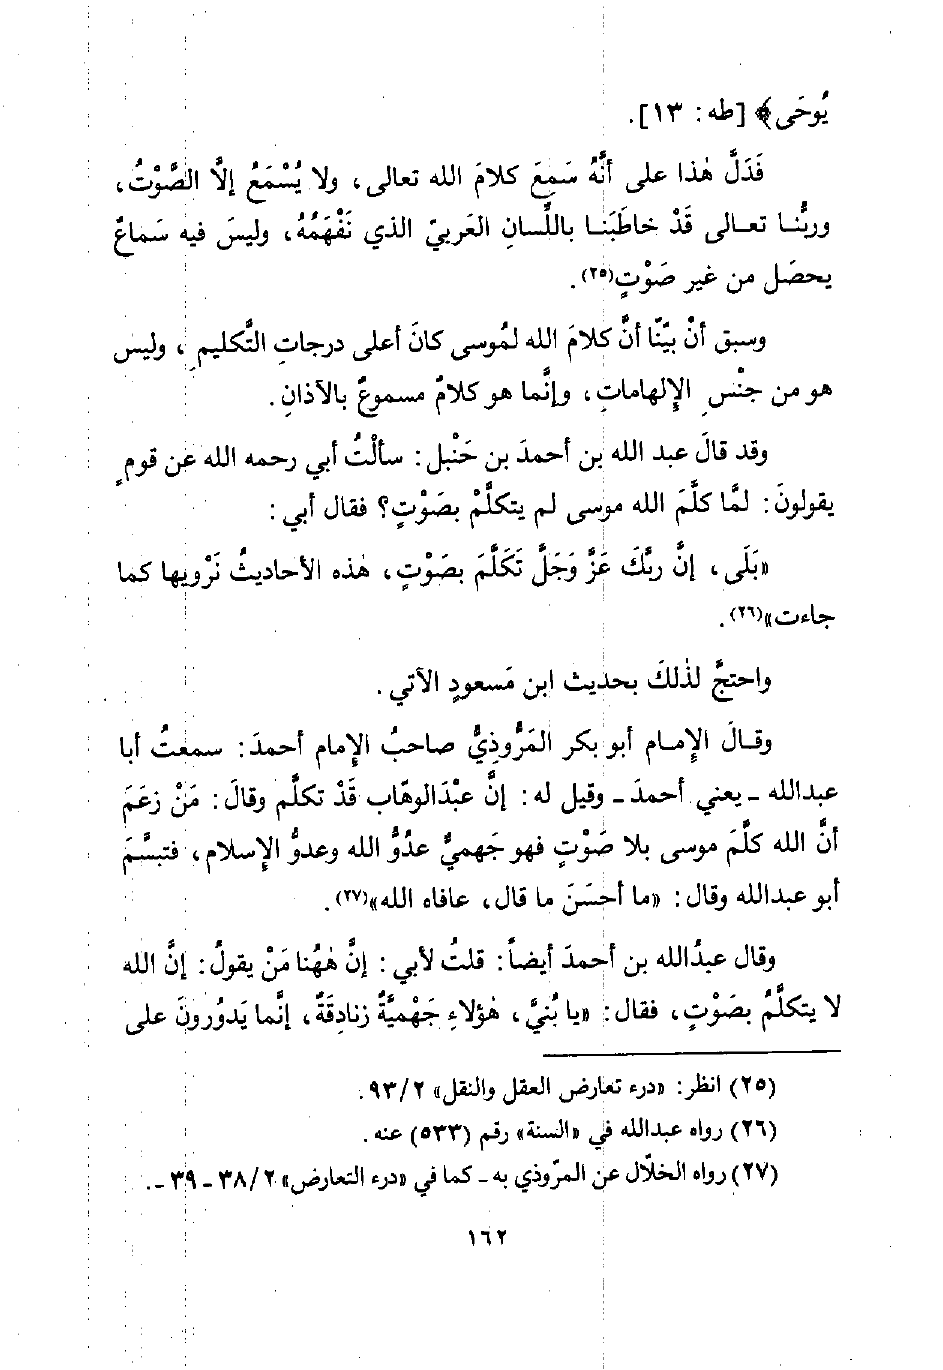 يُوحَى﴾ [طه: ١٣].
فَدَلَّ هٰذا على أنَّهُ سَمِعَ كلامَ الله تعالى، ولا يُسْمَعُ إلَّا الصَّوْتُ،
وربُّنا تعالى قَدْ خاطَبَنا باللِّسانِ العَربيّ الذي نَفْهَمُهُ، وليسَ فيه سَماعٌ
يحصَل من غير صَوْتٍ(٢٥).
وسبق أنْ بيّنّا أنَّ كلامَ الله لمُوسى كانَ أعلى درجاتِ التَّكليمِ، وليس
هو من جنْسِ الإِلهاماتِ، وإنَّما هو كلامٌ مسموعٌ بالآذانِ.
وقد قالَ عبد الله بن أحمدَ بن حَنْبل: سألْتُ أبي رحمه الله عن قومٍ
يقولونَ: لمَّا كلَّمَ الله موسى لم يتكلَّمْ بصَوْتٍ؟ فقال أبي:
«بَلَى، إنَّ ربَّكَ عَزَّ وَجَلَّ تَكَلَّمَ بصَوْتٍ، هٰذه الأحاديثُ نَرْويها كما
جاءت»(٢٦).
واحتجَّ لذٰلكَ بحديث ابن مَسعودٍ الآتي.
وقالَ الإِمام أبو بكر المَرُّوذِيُّ صاحبُ الإِمام أحمدَ: سمعتُ أبا
عبدالله ـ يعني أحمدَ ـ وقيل له: إنَّ عبْدَالوهّاب قَدْ تكلَّم وقالَ: مَنْ زعَمَ
أنَّ الله كلَّمَ موسى بلا صَوْتٍ فهو جَهميٌّ عدُوُّ الله وعدوُّ الإِسلام، فتبسَّمَ
أبو عبدالله وقال: «ما أحسَنَ ما قال، عافاه الله»(٢٧).
وقال عبدُالله بن أحمدَ أيضاً: قلتُ لأبي: إنَّ هٰهُنا مَنْ يقولُ: إنَّ الله
لا يتكلَّمُ بصَوْتٍ، فقال: «يا بُنيَّ، هٰؤلاءِ جَهْميَّةٌ زنادِقَةٌ، إنَّما يَدوُرونَ على
(٢٥) انظر: «درء تعارض العقل والنقل» ٩٣/٢.
(٢٦) رواه عبدالله في «السنة» رقم (٥٣٣) عنه.
(٢٧) رواه الخلّال عن المرّوذي به ـ كما في «درء التعارض» ٣٨/٢ ـ ٣٩ ـ.
١٦٢